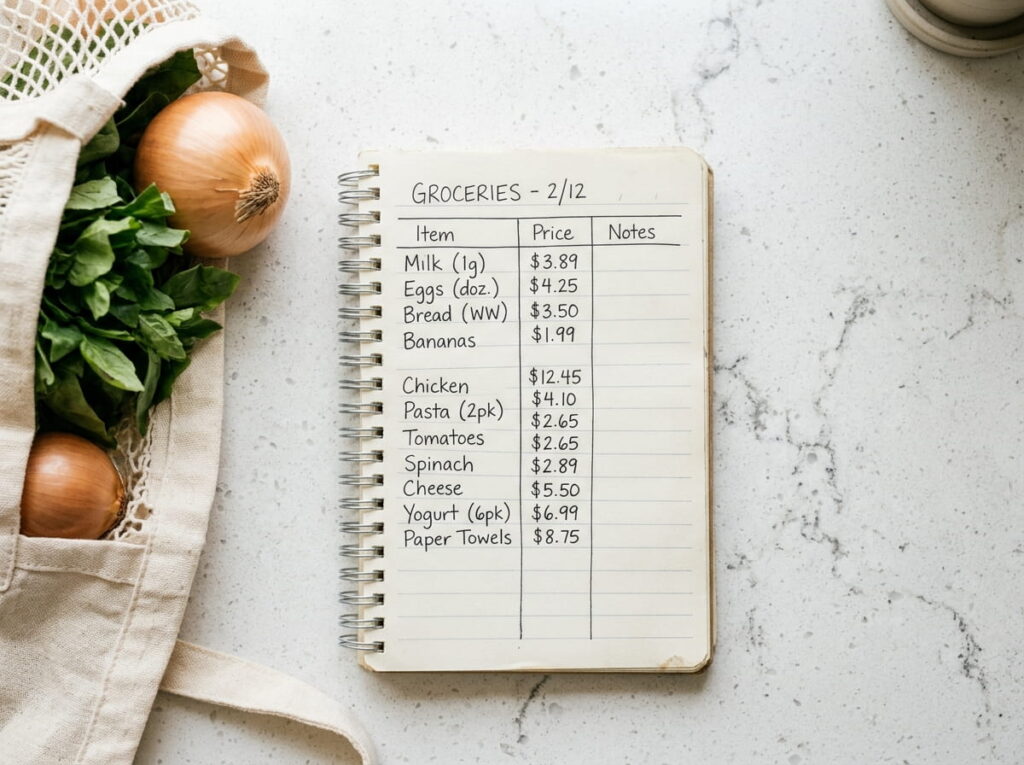 GROCERIES - 2/12
Item Price Notes
Milk (1g) $3.89
Eggs (doz.) $4.25
Bread (WW) $3.50
Bananas $1.99
Chicken $12.45
Pasta (2pk) $4.10
$2.65
Tomatoes $2.65
Spinach $2.89
Cheese $5.50
Yogurt (6pk) $6.99
Paper Towels $8.75